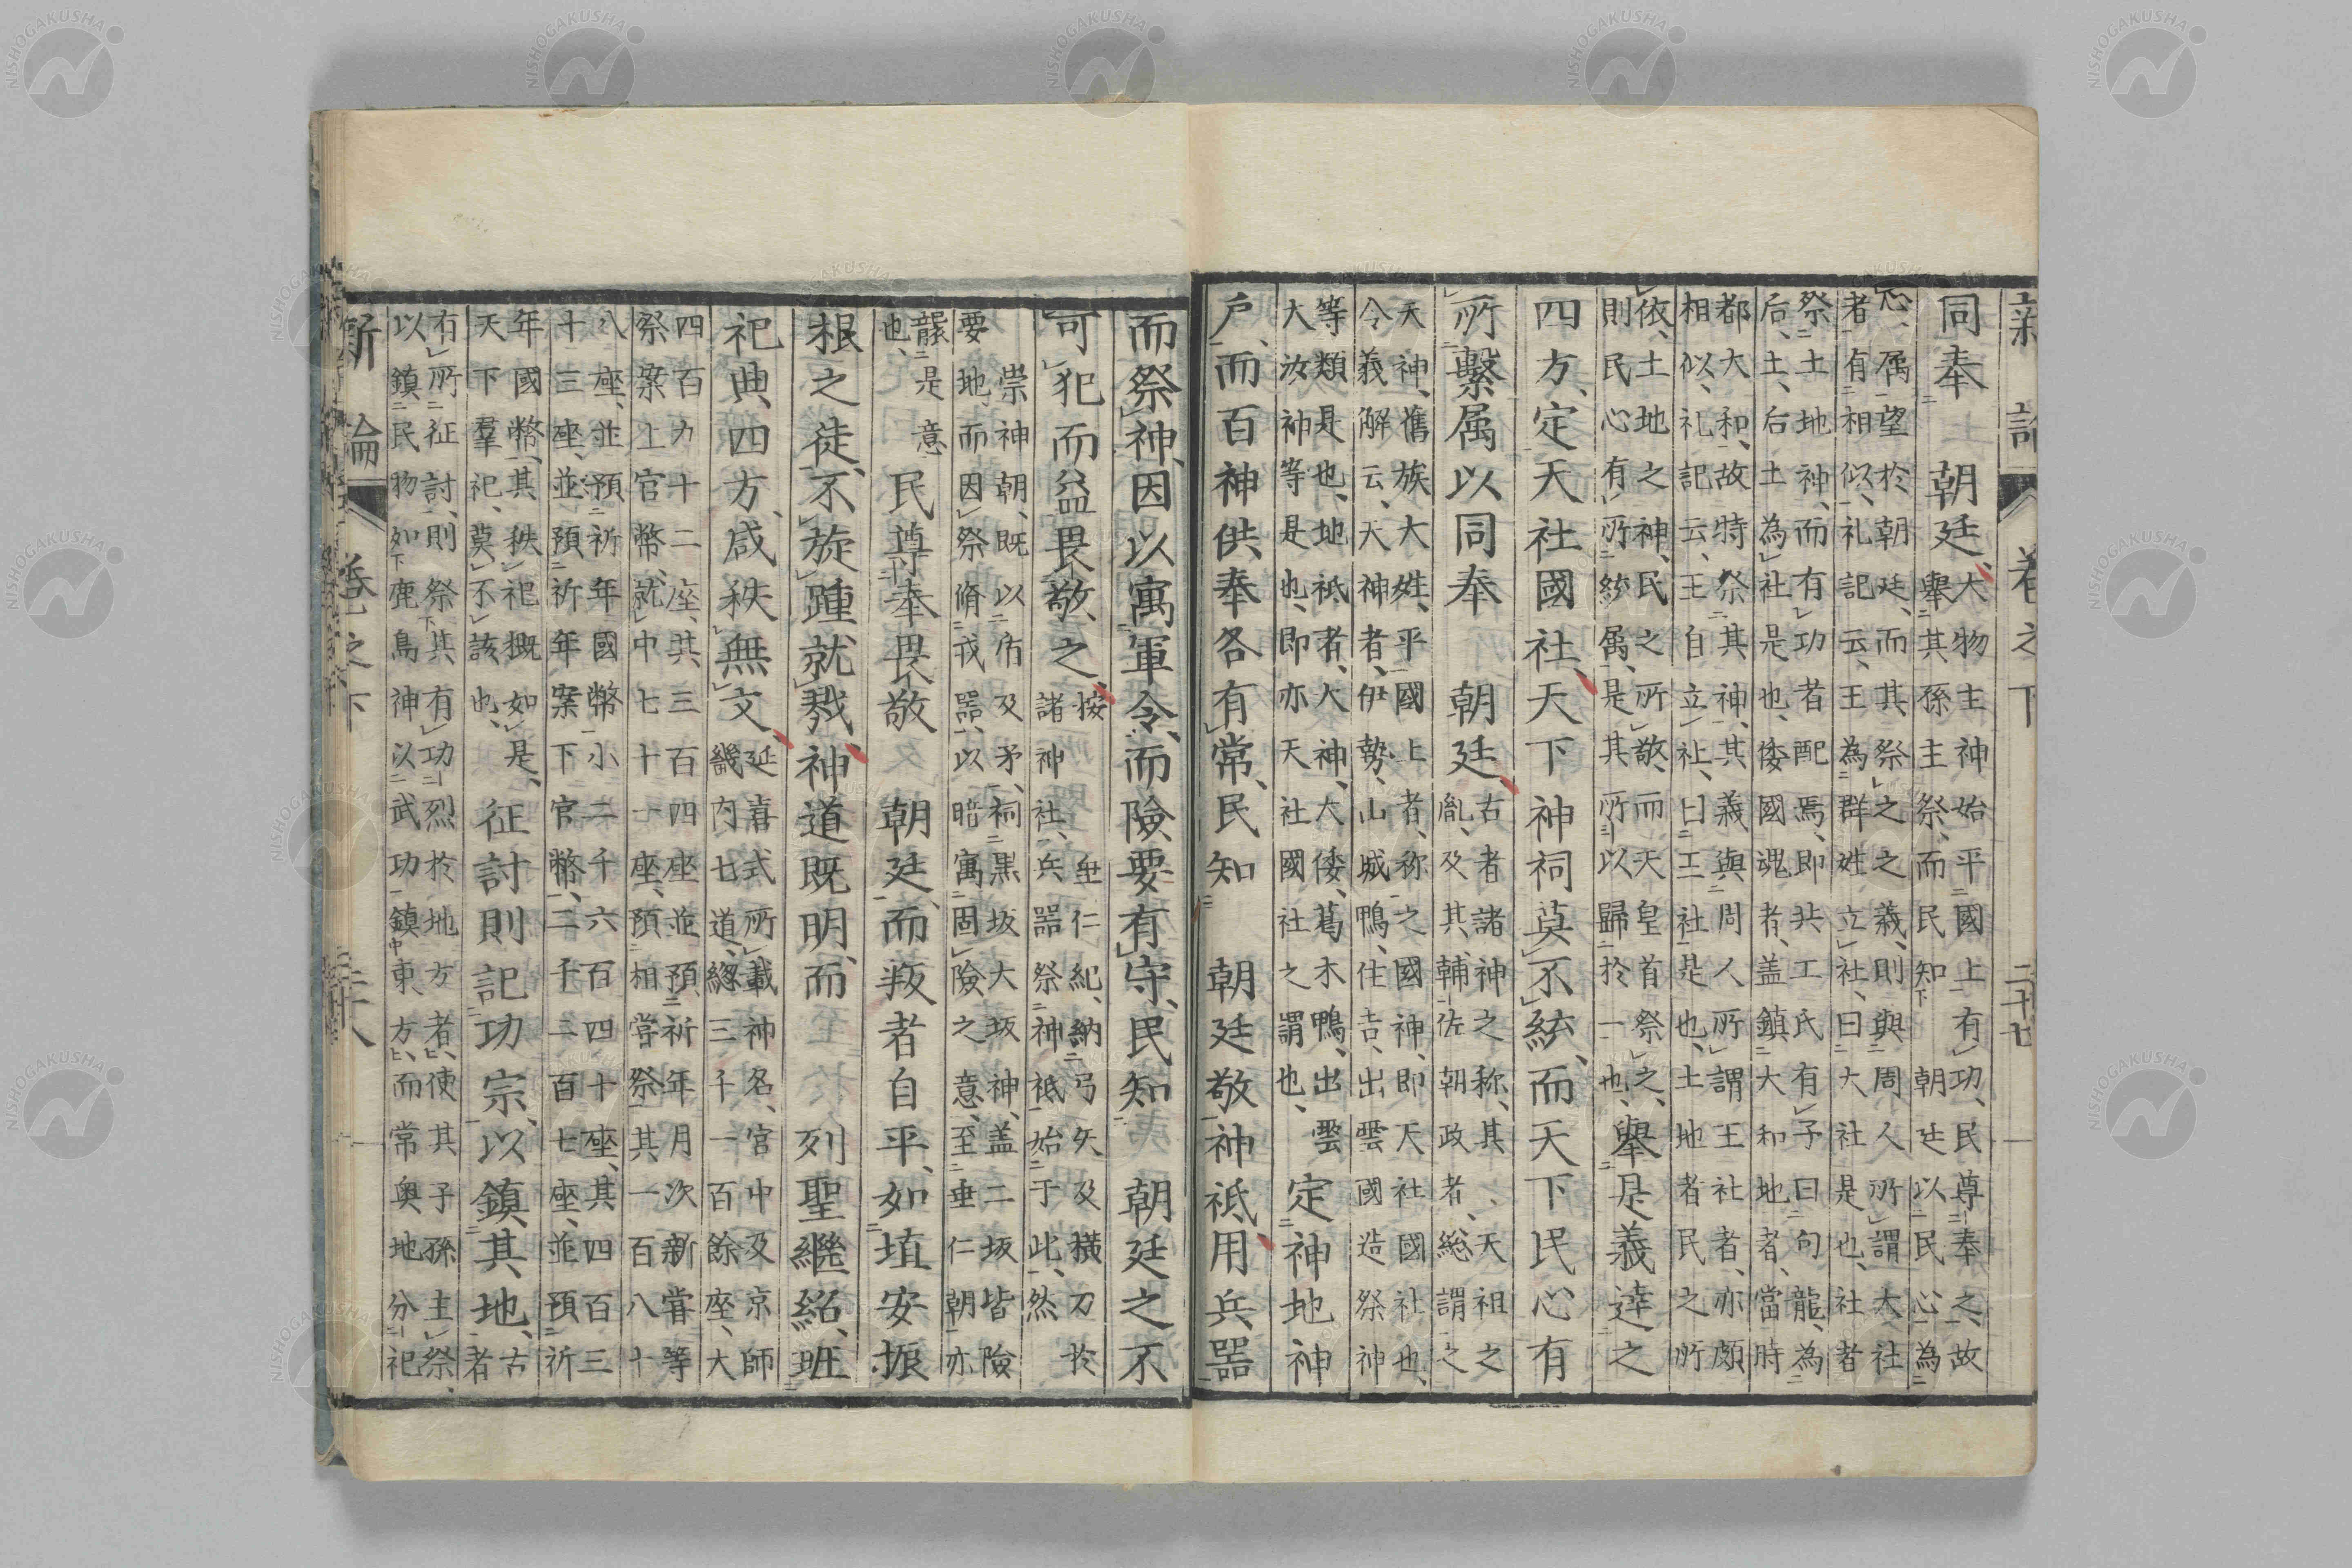 新論 卷之下 二十七
同奉 朝廷、
大物主神始平國上有功、民尊奉之、故
擧其孫主祭、而民知朝廷以民心為
心、属望於朝廷、而其祭之之義、則與周人所謂大社
者有相似、礼記云、王為群姓立社、曰大社是也、社者
祭土地神、而有功者配焉、即共工氏有子曰句龍、為
后土、后土為社是也、倭國魂者、盖鎮大和地者、當時
都大和、故特祭其神、其義與周人所謂王社者、亦頗
相似、礼記云、王自立社、曰王社是也、土地者民之所
依、土地之神、民之所敬、而天皇首祭之、
則民心有所統属、是其所以歸於一也、
擧是義達之
四方、定天社國社、天下神祠莫不統、而天下民心有
所繫属以同奉 朝廷、
古者諸神之称、其、天祖之
胤、及其輔佐朝政者、総謂之
天神、舊族大姓、平國上者、称之國神、即天社國社也、
令義解云、天神者、伊勢、山城鴨、住吉、出雲國造祭神
等類是也、地祇者、大神、大倭、葛木鴨、出雲
大汝神等是也、即亦天社國社之謂也、
定神地神
戸、而百神供奉各有常、民知 朝廷敬神祇用兵器
而祭神、因以寓軍令、而險要有守、民知 朝廷之不
可犯而益畏敬之、
按 垂仁紀、納弓矢及横刀於
諸神社、兵器祭神祇始于此、然
崇神朝、既以盾及矛、祠黒坂大坂神、盖二坂皆險
要地、而因祭脩戎器、以暗寓固險之意、至垂仁朝亦
襲是意
也、
民尊奉畏敬 朝廷、而叛者自平、如埴安振
根之徒、不旋踵就戮、神道既明、而列聖繼紹、班
祀典、四方咸秩無文、
延喜式所載神名、宮中及京師
畿内七道、總三千一百餘座、大
四百九十二座、共三百四座並預祈年月次新甞等
祭案上官幣、就中七十一座、預相甞祭、其一百八十
八座、並預祈年國幣、小二千六百四十座、其四百三
十三座、並預祈年案下官幣、二千二百七座、並預祈
年國幣、其秩祀概如是、
天下羣祀、莫不該也、
征討則記功宗、以鎮其地、
古
者
有所征討、則祭其有功烈於地方者、使其子孫主祭、
以鎮民物、如鹿鳥神以武功鎮東方、而常奥地分祀
新論 卷之下 二十八